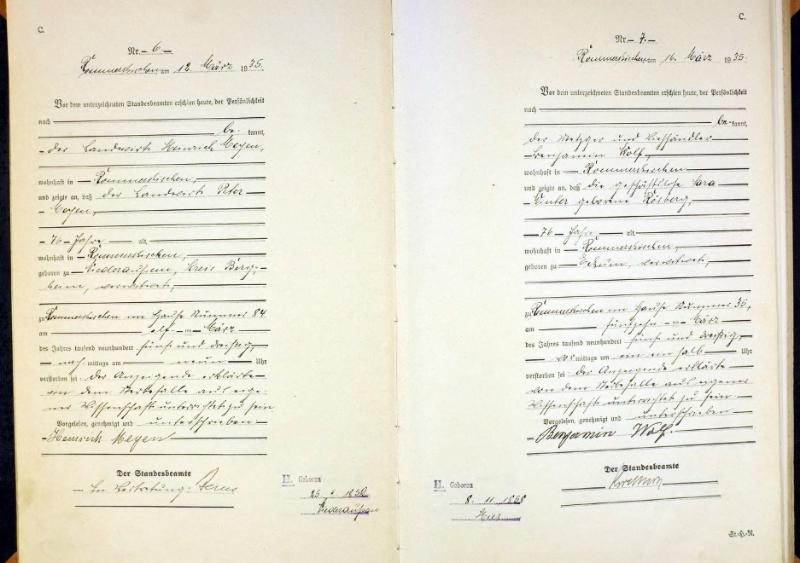 C.
Nr. 6.
Rommerskirchen am 12. März 1935.
Vor dem unterzeichneten Standesbeamten erschien heute, der Persönlichkeit
nach
be kannt,
der Landwirt Heinrich Meyen,
wohnhaft in Rommerskirchen,
und zeigte an, daß der Landwirt Peter
Meyen,
76 Jahre alt
wohnhaft in Rommerskirchen,
geboren zu Niederaußem, Kreis Berg-
heim, verwitwet,
zu Rommerskirchen im Hause Nummer 84
am elf März
des Jahres tausend neunhundert fünf und dreißig,
nach mittags um neun Uhr
verstorben sei. Der Anzeigende erklärte
von dem Sterbefalle aus eige-
ner Wissenschaft unterrichtet zu sein
Vorgelesen, genehmigt und unterschrieben
Heinrich Meyen
Der Standesbeamte
In Vertretung:
H. Geboren
Niederaußem
C.
Nr. 7.
Rommerskirchen am 16. März 1935.
Vor dem unterzeichneten Standesbeamten erschien heute, der Persönlichkeit
nach
be kannt,
der Metzger und Viehhändler
Benjamin Wolf,
wohnhaft in Rommerskirchen
und zeigte an, daß die geschäftslose Sara
geborene
76 Jahre alt
wohnhaft in Rommerskirchen,
geboren zu verwitwet,
zu Rommerskirchen im Hause Nummer 36,
am fünfzehn März
des Jahres tausend neunhundert fünf und dreißig,
vor mittags um ein einhalb Uhr
verstorben sei. Der Anzeigende erklärte
von dem Sterbefalle aus eigener
Wissenschaft unterrichtet zu sein
Vorgelesen, genehmigt und unterschrieben
Benjamin Wolf.
Der Standesbeamte
H. Geboren
8. 11. 1858
St.H.A.